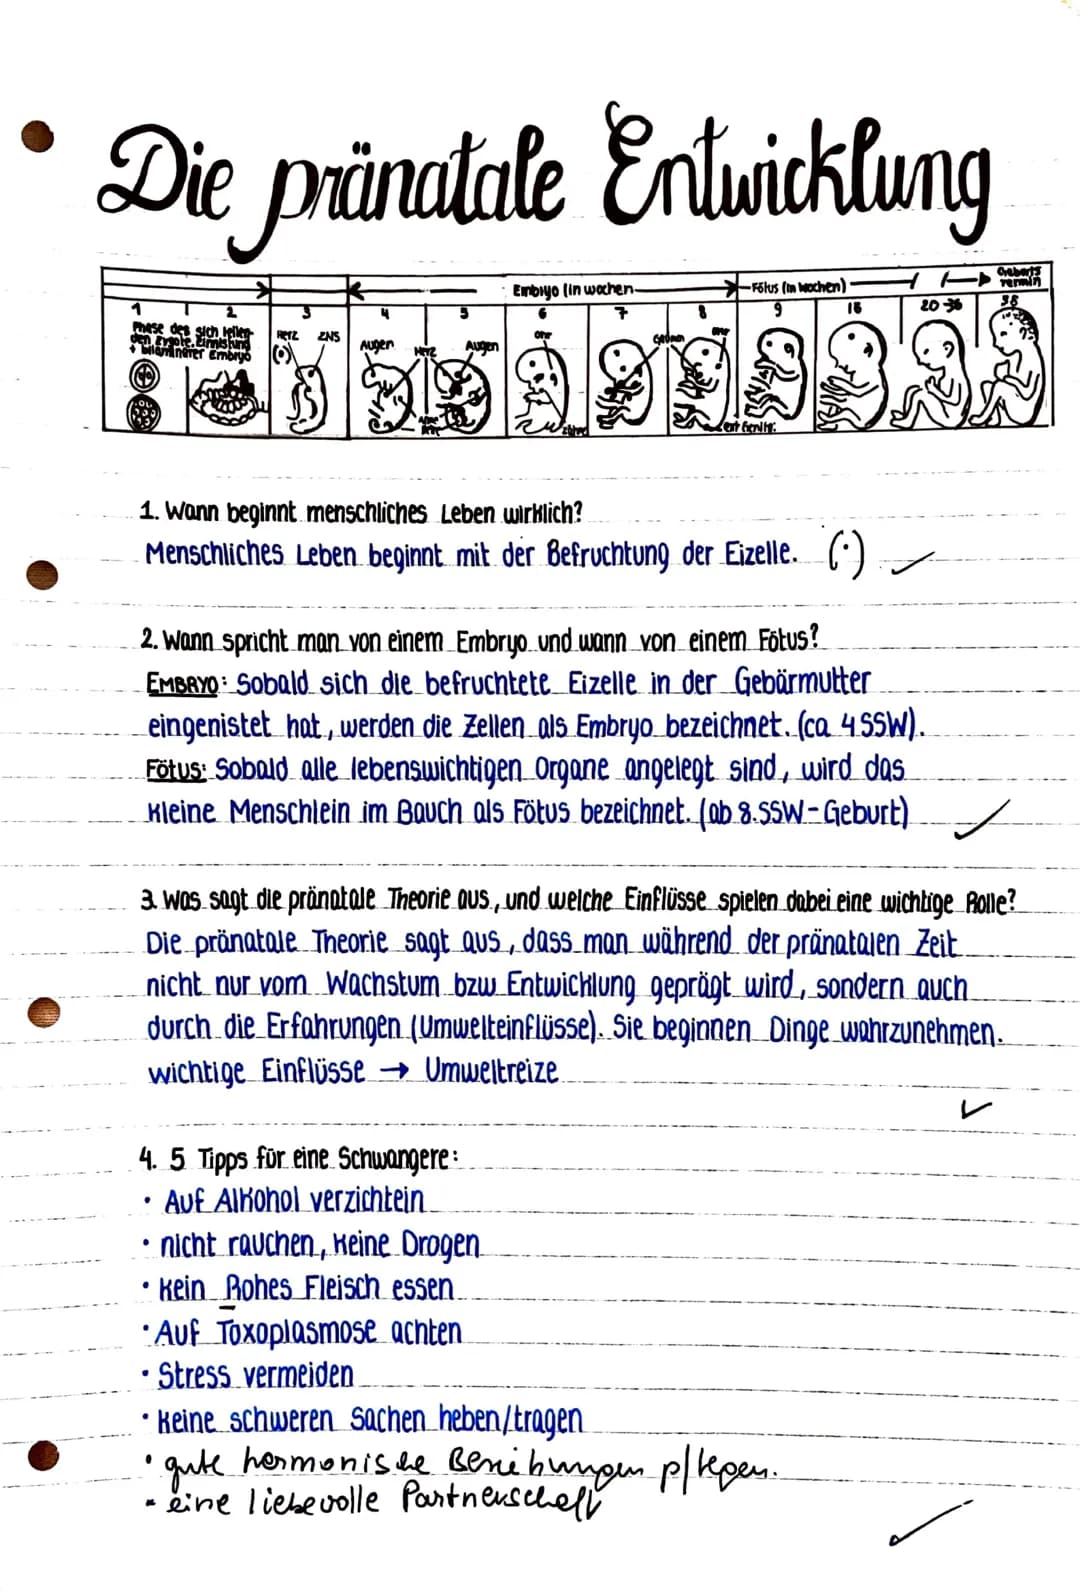 Die pränatale Entwicklung
Embryo (in wochen
Fötus (in wochen)
Geburts
termin
1 2 3 4 5 6 7 8 9 16 20-36 38
Phase des sich teilen-
den Zygote, Einnistung
+ bilaminärer Embryo
Herz ZNS
Augen Herz Augen
Ohr
Gaumen
Ohr
Arme
Zähne
ext Genita:
1. Wann beginnt menschliches Leben wirklich?
Menschliches Leben beginnt mit der Befruchtung der Eizelle.
2. Wann spricht man von einem Embryo und wann von einem Fötus?
EMBRYO: Sobald sich die befruchtete Eizelle in der Gebärmutter
eingenistet hat, werden die Zellen als Embryo bezeichnet. (ca 4 SSW).
Fötus: Sobald alle lebenswichtigen Organe angelegt sind, wird das
kleine Menschlein im Bauch als Fötus bezeichnet. (ab 8.SSW-Geburt)
3. Was sagt die pränatale Theorie aus, und welche Einflüsse spielen dabei eine wichtige Rolle?
Die pränatale Theorie sagt aus, dass man während der pränatalen Zeit
nicht nur vom Wachstum bzw Entwicklung geprägt wird, sondern auch
durch die Erfahrungen (Umwelteinflüsse). Sie beginnen Dinge wahrzunehmen.
wichtige Einflüsse → Umweltreize
4. 5 Tipps für eine Schwangere:
• Auf Alkohol verzichtein
• nicht rauchen, keine Drogen
• kein Rohes Fleisch essen
• Auf Toxoplasmose achten
• Stress vermeiden
• keine schweren Sachen heben/tragen
• gute harmonische Beziehungen pflegen.
- eine liebevolle Partnerschaft